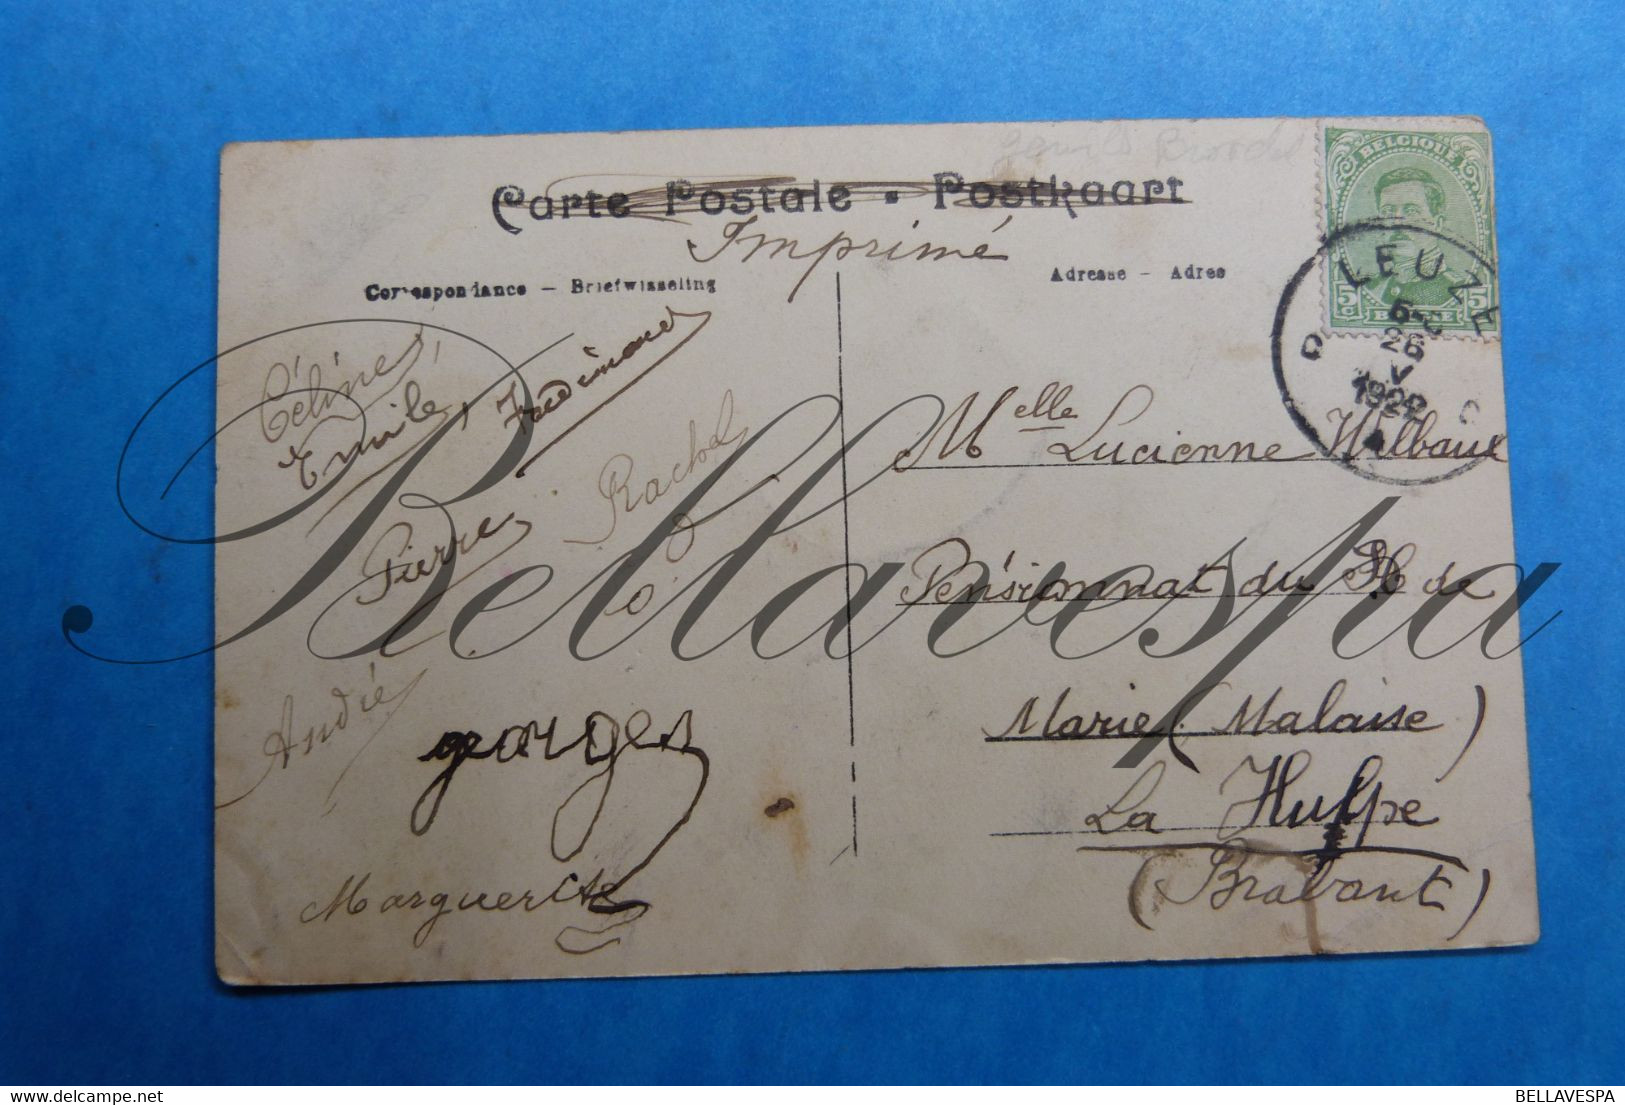 Carte Postale • Postkaart
Imprimé
Correspondance – Briefwisseling
Adresse – Adres
BELGIQUE
5c BELGIE 5c
LEUZE
26 V
1922
Céline,
Emile,
Ferdinand
Pierre
Rachel
André
georges
Marguerite
Melle Lucienne Wilbaux
Pensionnat du St de
Marie (Malaise)
La Hulpe
(Brabant)
Bellavespa
www.delcampe.net
BELLAVESPA